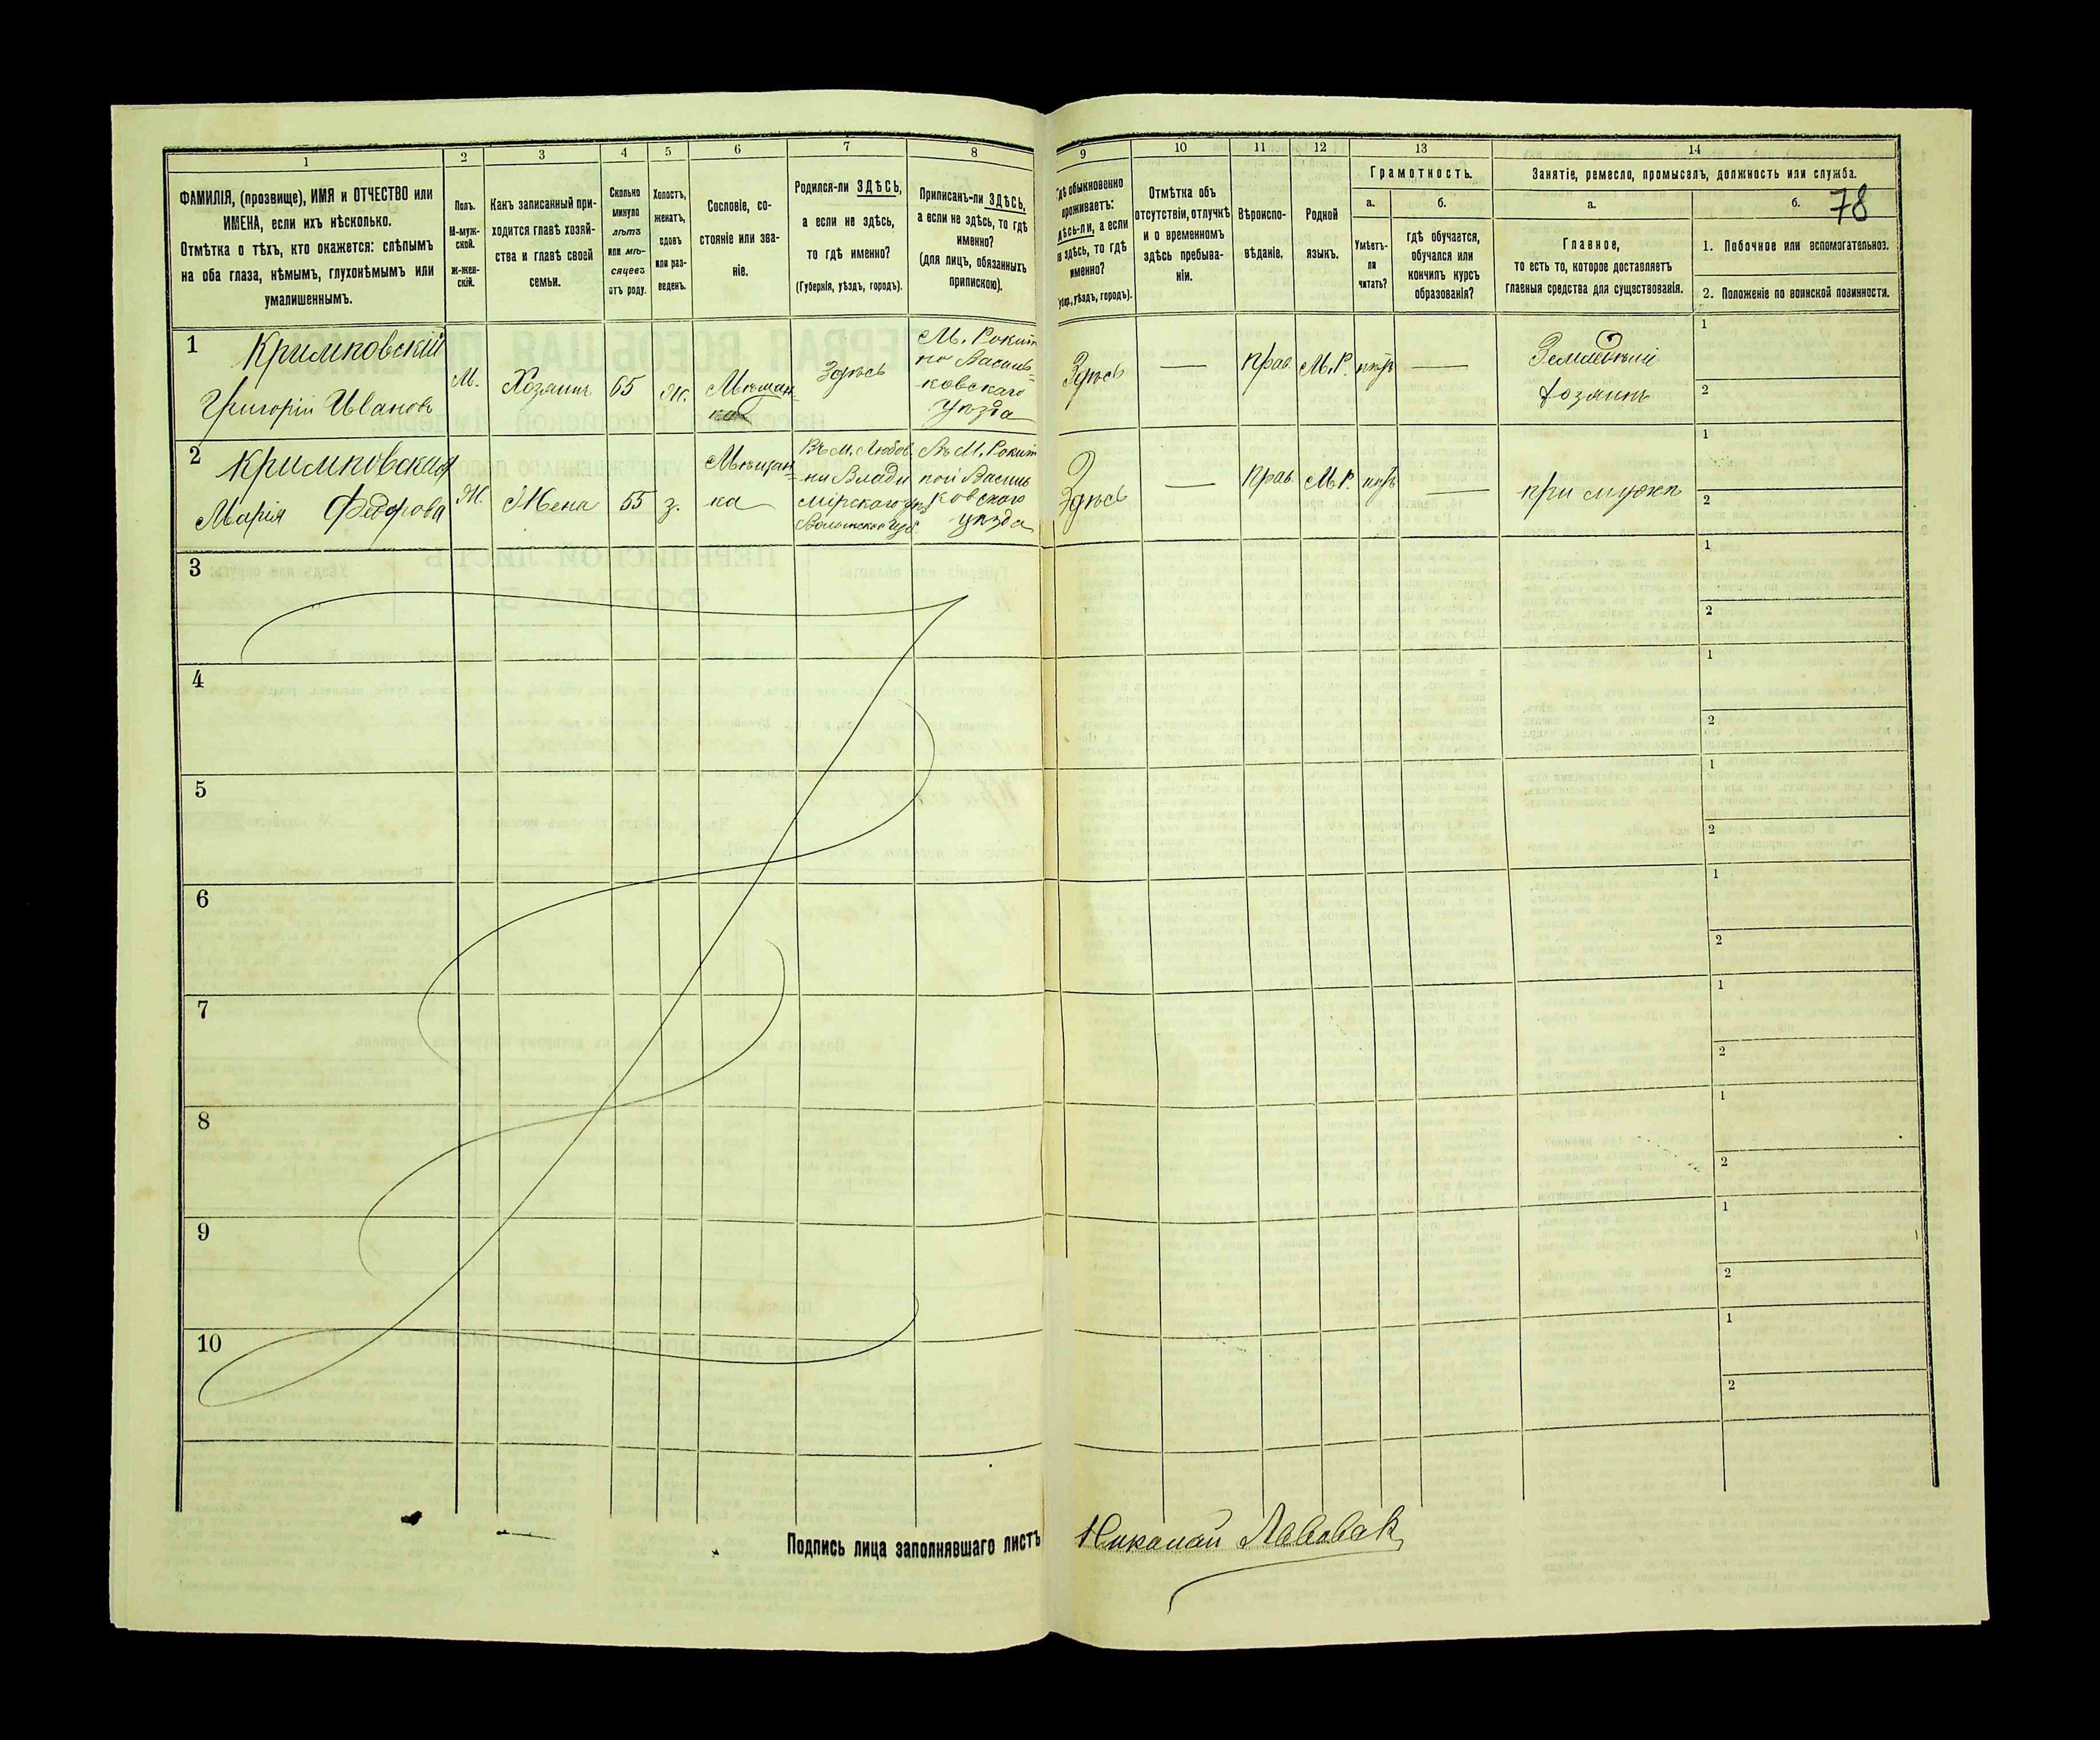 1 2 3 4 5 6 7 8
ФАМИЛІЯ, (прозвище), ИМЯ и ОТЧЕСТВО или
ИМЕНА, если ихъ нѣсколько.
Отмѣтка о тѣхъ, кто окажется: слѣпымъ
на оба глаза, нѣмымъ, глухонѣмымъ или
умалишеннымъ.
Полъ.
М-муж-
ской.
Ж-жен-
скій.
Какъ записанный при-
ходится главѣ хозяй-
ства и главѣ своей
семьи.
Сколько
минуло
лѣтъ
или мѣ-
сяцевъ
отъ роду.
Холостъ,
женатъ,
вдовъ
или раз-
веденъ.
Сословіе, со-
стояніе или зва-
ніе.
Родился-ли ЗДѢСЬ,
а если не здѣсь,
то гдѣ именно?
(Губернія, уѣздъ, городъ).
Приписанъ-ли ЗДѢСЬ,
а если не здѣсь, то гдѣ
именно?
(для лицъ, обязанныхъ
припискою).
9 10 11 12 13 14
обыкновенно
проживаетъ:
а если
здѣсь, то гдѣ
именно?
уѣздъ, городъ).
Отмѣтка объ
отсутствіи, отлучкѣ
и о временномъ
здѣсь пребыва-
ніи.
Вѣроиспо-
вѣданіе.
Родной
языкъ.
Грамотность.
а. б.
Умѣетъ-
ли
читать?
гдѣ обучается,
обучался или
кончилъ курсъ
образованія?
Занятіе, ремесло, промыселъ, должность или служба.
а. б. 78
Главное,
то есть то, которое доставляетъ
главныя средства для существованія.
1. Побочное или вспомогательное.
2. Положеніе по воинской повинности.
1 Кримковскій
Григорій Ивановъ
М.
Хозяинъ
65
Ж.
Мѣщан
Здѣсь
М. Рокит
но Василь-
ковскаго
уѣзда
Здѣсь
—
Прав.
М.Р.
—
хозяинъ
1
2
2 Кримковская
Марія Федорова
Ж.
Жена
55
з.
Мѣщан-
ка
Въ М. Любом
ли Влади
мірскаго уѣз
Волынской губ.
Въ М. Рокит
ной Василь
ковскаго
уѣзда
Здѣсь
—
Прав.
М.Р.
—
при мужѣ
1
2
3
1
2
4
1
2
5
1
2
6
1
2
7
1
2
8
1
2
9
1
2
10
1
2
Подпись лица заполнявшаго листъ
Николай